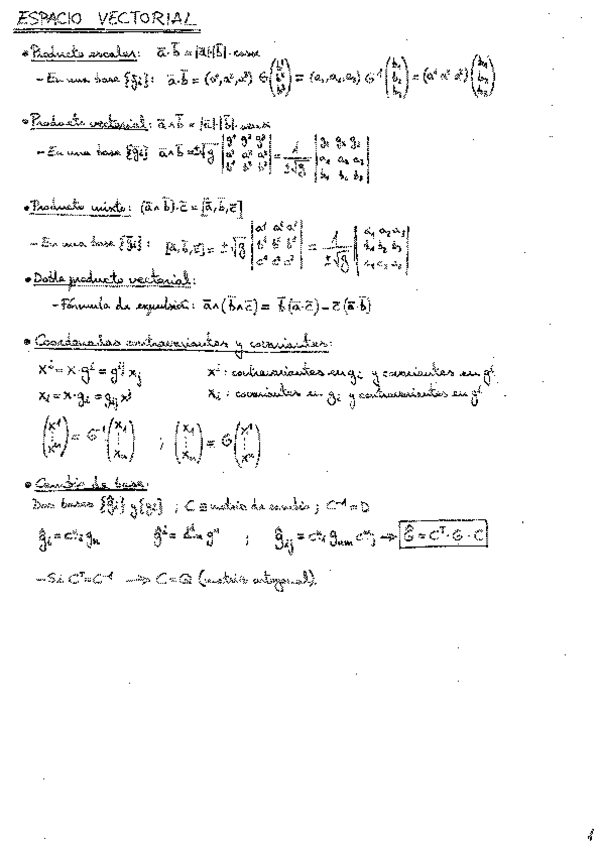 ESPACIO VECTORIAL
• Producto escalar: a̅·b̅ = |a̅|·|b̅|·cosα
– En una base {g̅ᵢ}: a̅·b̅ = (a¹,a²,a³) G (b¹ b² b³) = (a₁,a₂,a₃) G⁻¹ (b₁ b₂ b₃) = (a¹ a² a³) (b₁ b₂ b₃)
• Producto vectorial: a̅∧b̅ = |a̅|·|b̅|·senα
– En una base {g̅ᵢ} a̅∧b̅ = ±√g |g¹ g² g³; a¹ a² a³; b¹ b² b³| = 1/±√g |g₁ g₂ g₃; a₁ a₂ a₃; b₁ b₂ b₃|
• Producto mixto: (a̅∧b̅)·c̅ = [a̅,b̅,c̅]
– En una base {g̅ᵢ}: [a̅,b̅,c̅] = ±√g |a¹ a² a³; b¹ b² b³; c¹ c² c³| = 1/±√g |a₁ a₂ a₃; b₁ b₂ b₃; c₁ c₂ c₃|
• Doble producto vectorial:
– Fórmula de expulsión: a̅∧(b̅∧c̅) = b̅(a̅·c̅) – c̅(a̅·b̅)
• Coordenadas contravariantes y covariantes:
xⁱ = x·gⁱ = gⁱʲ xⱼ xⁱ: contravariantes en gᵢ y covariantes en gⁱ
xᵢ = x·gᵢ = gᵢⱼ xʲ xᵢ: covariantes en gᵢ y contravariantes en gⁱ
(x¹ ⋮ xⁿ) = G⁻¹ (x₁ ⋮ xₙ) ; (x₁ ⋮ xₙ) = G (x¹ ⋮ xⁿ)
• Cambio de base:
Dos bases {ĝᵢ} y {gᵢ} ; C ≡ matriz de cambio ; C⁻¹ = D
→ Ĝ = Cᵀ·G·C
– Si Cᵀ = C⁻¹ → C = Q (matriz ortogonal).
1